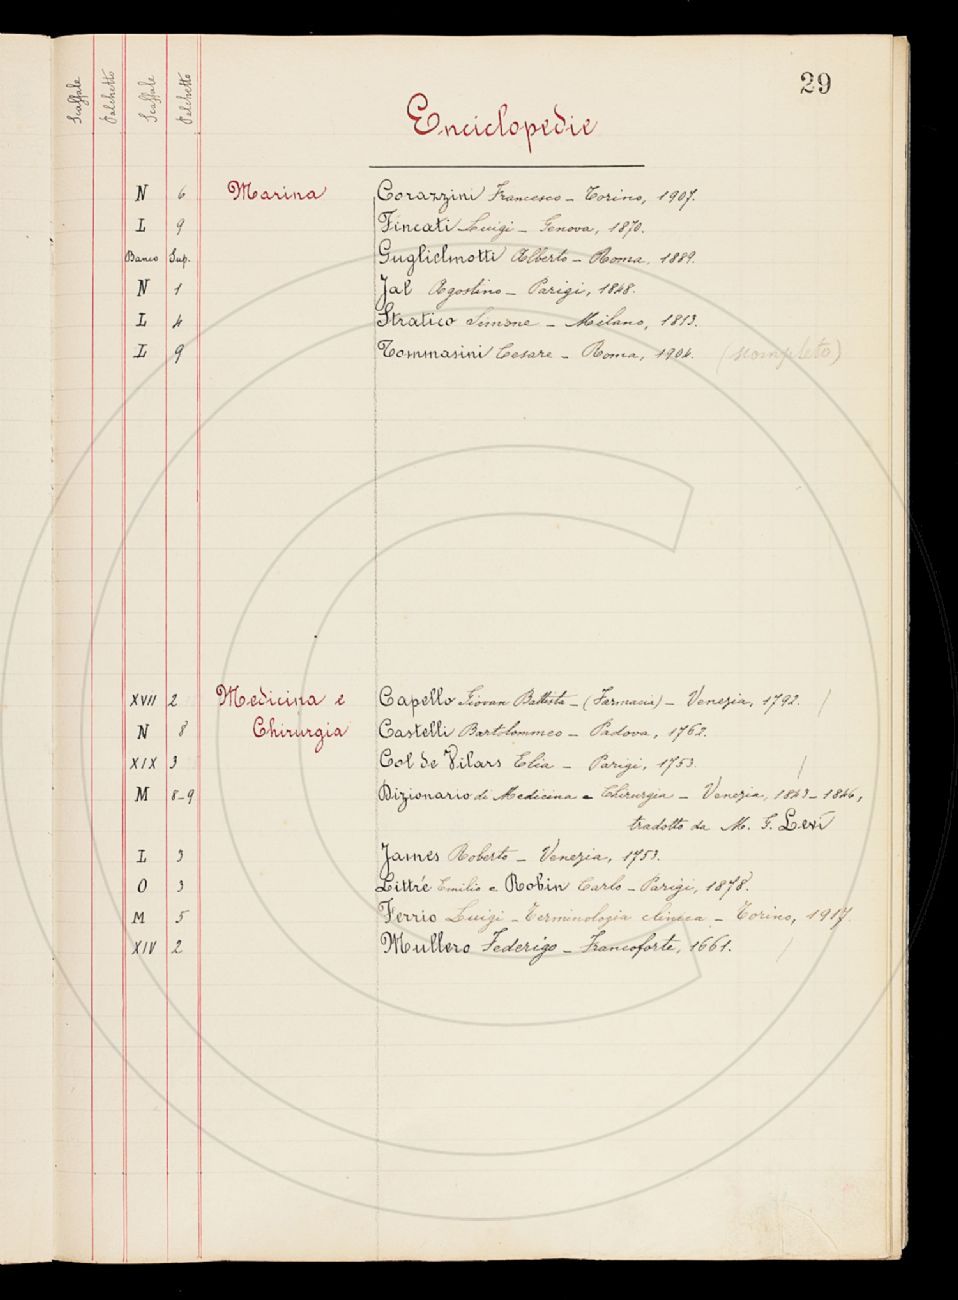 29
Scaffale Palchetto Scaffale Palchetto
Enciclopedie
N 6 Marina Corazzini Francesco - Torino, 1907.
L 9 Fincati Luigi - Genova, 1870.
Banco Sup. Guglielmotti Alberto - Roma, 1889.
N 1 Jal Agostino - Parigi, 1848.
L 4 Stratico Simone - Milano, 1813.
L 9 Tommasini Cesare - Roma, 1904. (scompleto)
XVII 2 Medicina e Capello Giovan Battista - (Farmacia) - Venezia, 1792. /
N 8 Chirurgia Castelli Bartolommeo - Padova, 1762.
XIX 3 Col de Vilars Elia - Parigi, 1753. /
M 8-9 Dizionario di Medicina e Chirurgia - Venezia, 1843-1846,
tradotto da M. G. Levi
L 3 James Roberto - Venezia, 1753.
O 3 Littré Emilio e Robin Carlo - Parigi, 1878.
M 5 Ferrio Luigi - Terminologia clinica - Torino, 1917.
XIV 2 Mullero Federigo - Francoforte, 1661. /